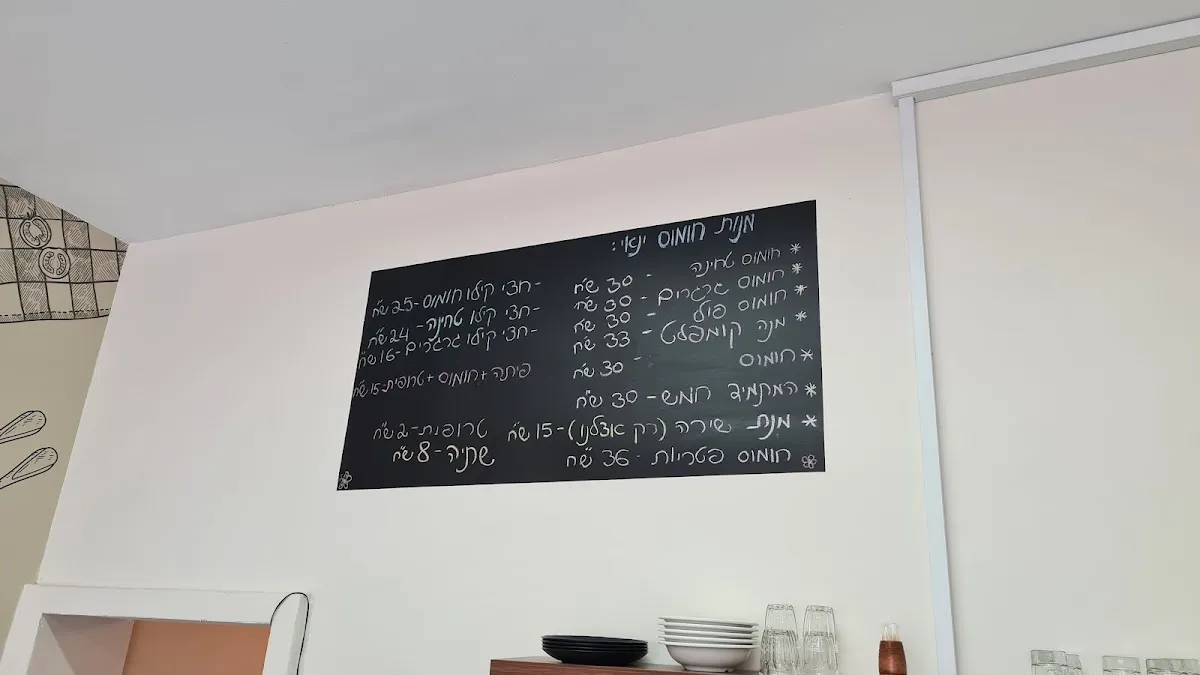 מנות חומוס ינאי:
* חומוס טחינה - 30 ש״ח
* חומוס גרגרים - 30 ש״ח
* חומוס פול - 30 ש״ח
* מנה קומפלט - 33 ש״ח
* חומוס - 30 ש״ח
* המתמיד חמש - 30 ש״ח
* מנת שירה (רק אצלנו) - 15 ש״ח
חומוס פטריות - 36 ש״ח
- חצי קילו חומוס - 25 ש״ח
- חצי קילו טחינה - 24 ש״ח
- חצי קילו גרגרים - 16 ש״ח
פיתה + חומוס + טרופית - 15 ש״ח
טרופית - 2 ש״ח
שתיה - 8 ש״ח